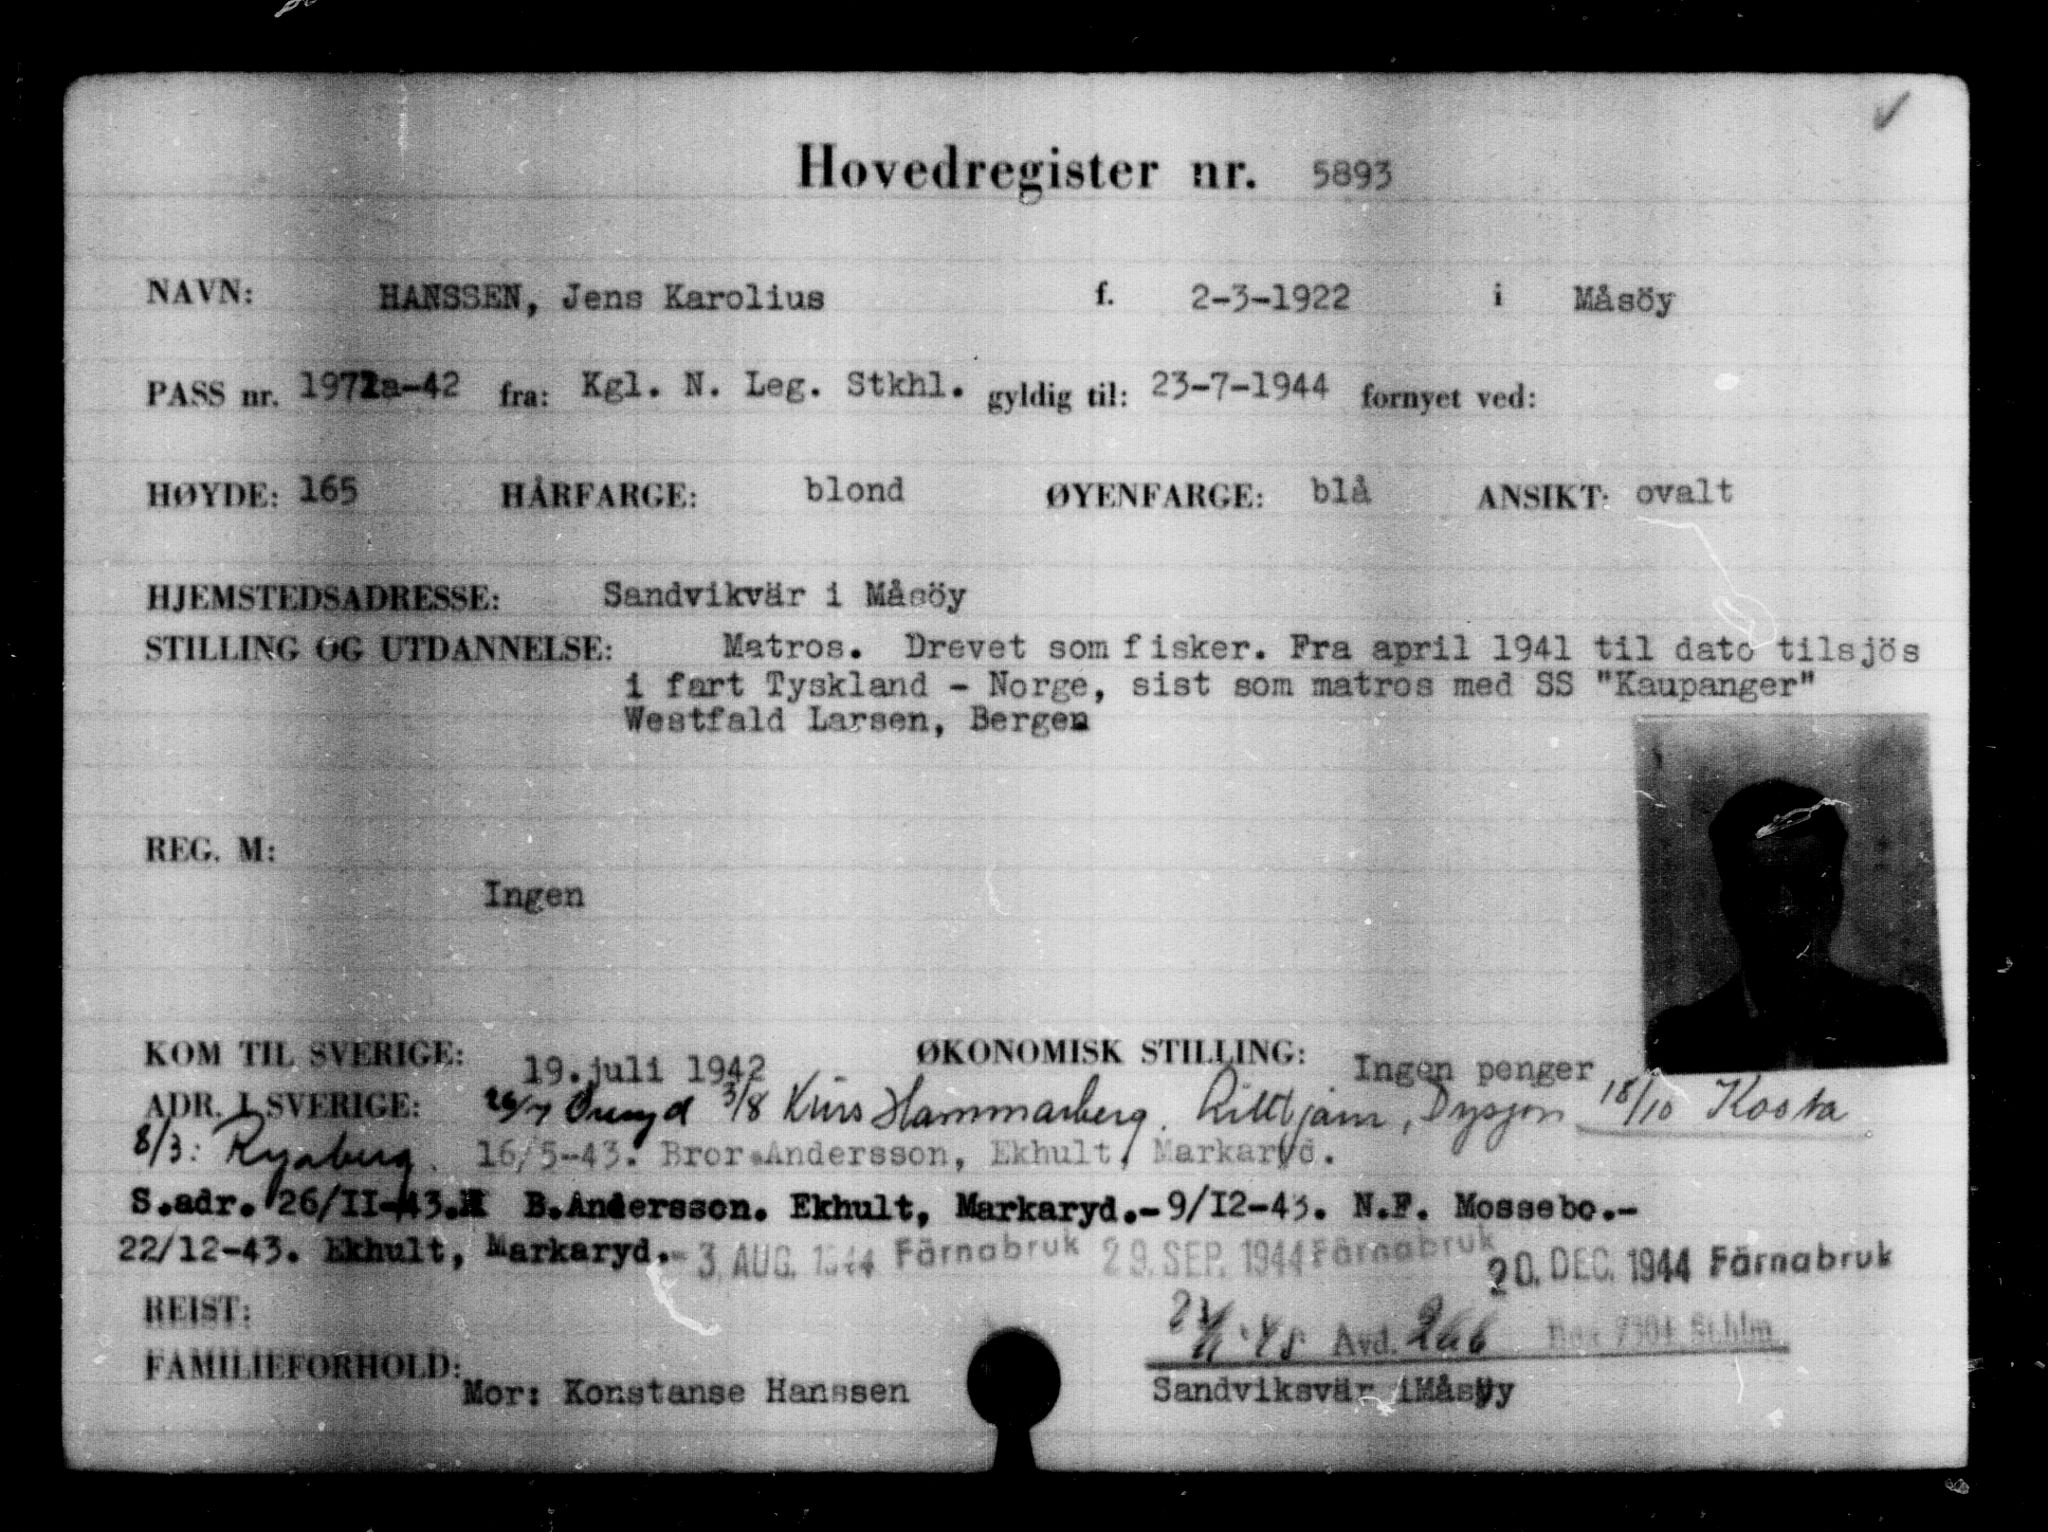 Hovedregister nr. 5893
NAVN: HANSSEN, Jens Karolius f. 2-3-1922 i Måsöy
PASS nr. 1971a-42 fra: Kgl. N. Leg. Stkhl. gyldig til: 23-7-1944 fornyet ved:
HØYDE: 165 HÅRFARGE: blond ØYENFARGE: blå ANSIKT: ovalt
HJEMSTEDSADRESSE: Sandvikvär i Måsöy
STILLING OG UTDANNELSE: Matros. Drevet som fisker. Fra april 1941 til dato tilsjös
i fart Tyskland - Norge, sist som matros med SS "Kaupanger"
Westfald Larsen, Bergen
REG. M:
Ingen
KOM TIL SVERIGE: 19.juli 1942 ØKONOMISK STILLING: Ingen penger
ADR. I SVERIGE: 26/7 Öreryd 3/8 Kurs Hammarberg. 18/10 Kosta
8/3: Ryaberg. 16/5-43. Bror Andersson, Ekhult, Markaryd.
S.adr. 26/II-43. B.Andersson. Ekhult, Markaryd.- 9/12-43. N.F. Mossebo.-
22/12-43. Ekhult, Markaryd.- 3. AUG. 1944 Färnabruk 29. SEP. 1944 Färnabruk 20. DEC. 1944 Färnabruk
REIST: Avd. 266 Sthlm
FAMILIEFORHOLD: Mor: Konstanse Hanssen Sandviksvär i Måsöy